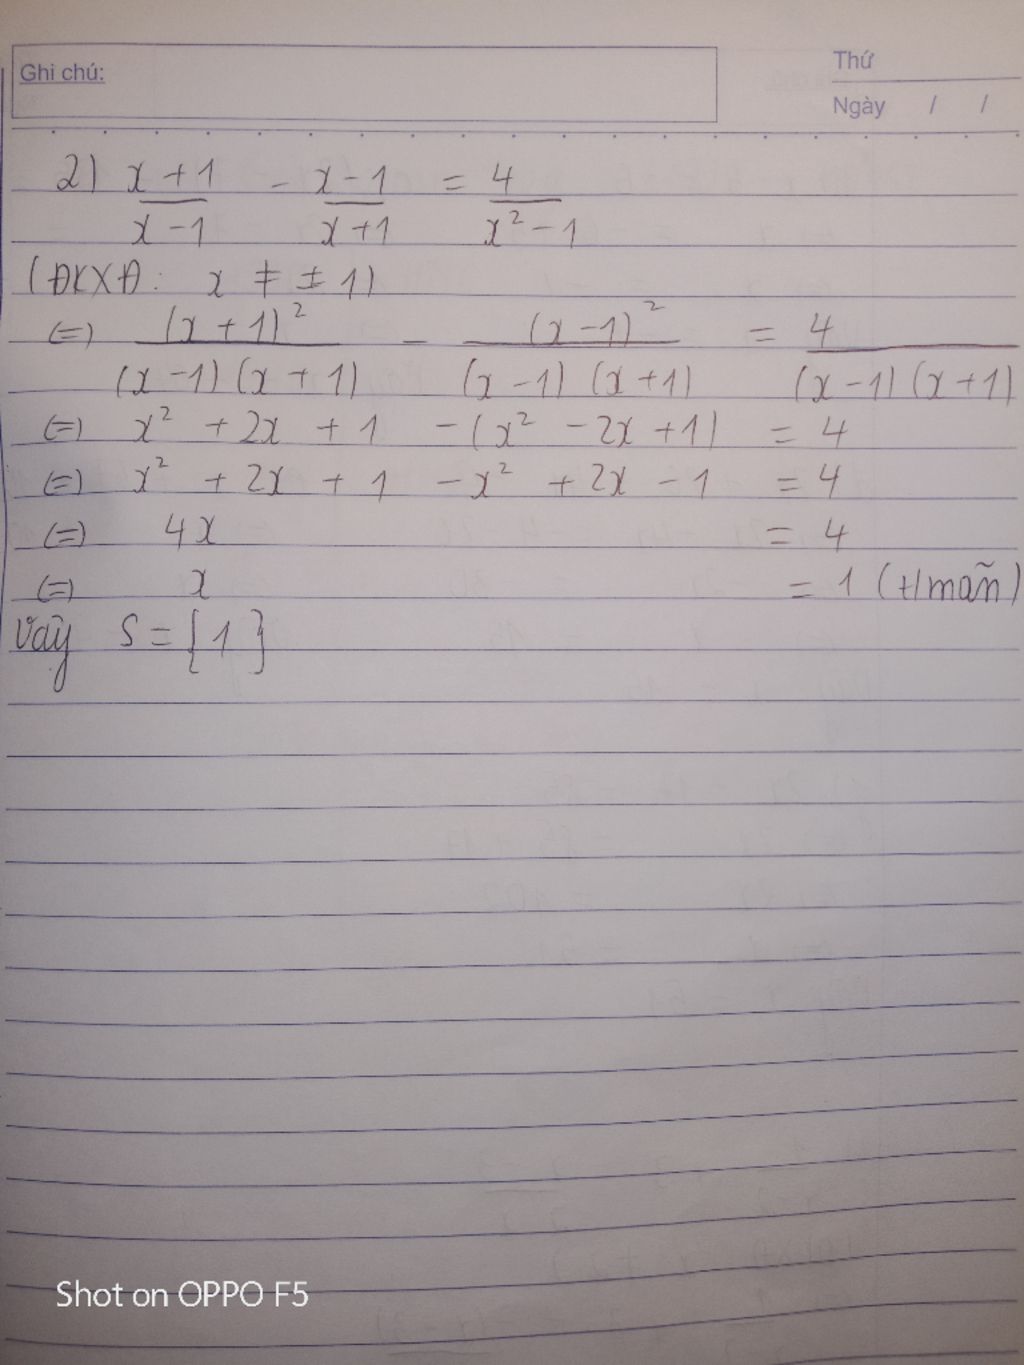 Ghi chú:
Thứ
Ngày / /
2) x+1/x-1 - x-1/x+1 = 4/x²-1
(ĐKXĐ: x ≠ ±1)
(=) (x+1)²/(x-1)(x+1) - (x-1)²/(x-1)(x+1) = 4/(x-1)(x+1)
(=) x² + 2x + 1 - (x² - 2x + 1) = 4
(=) x² + 2x + 1 - x² + 2x - 1 = 4
(=) 4x = 4
(=) x = 1 (t/mãn)
Vậy S = {1}
Shot on OPPO F5